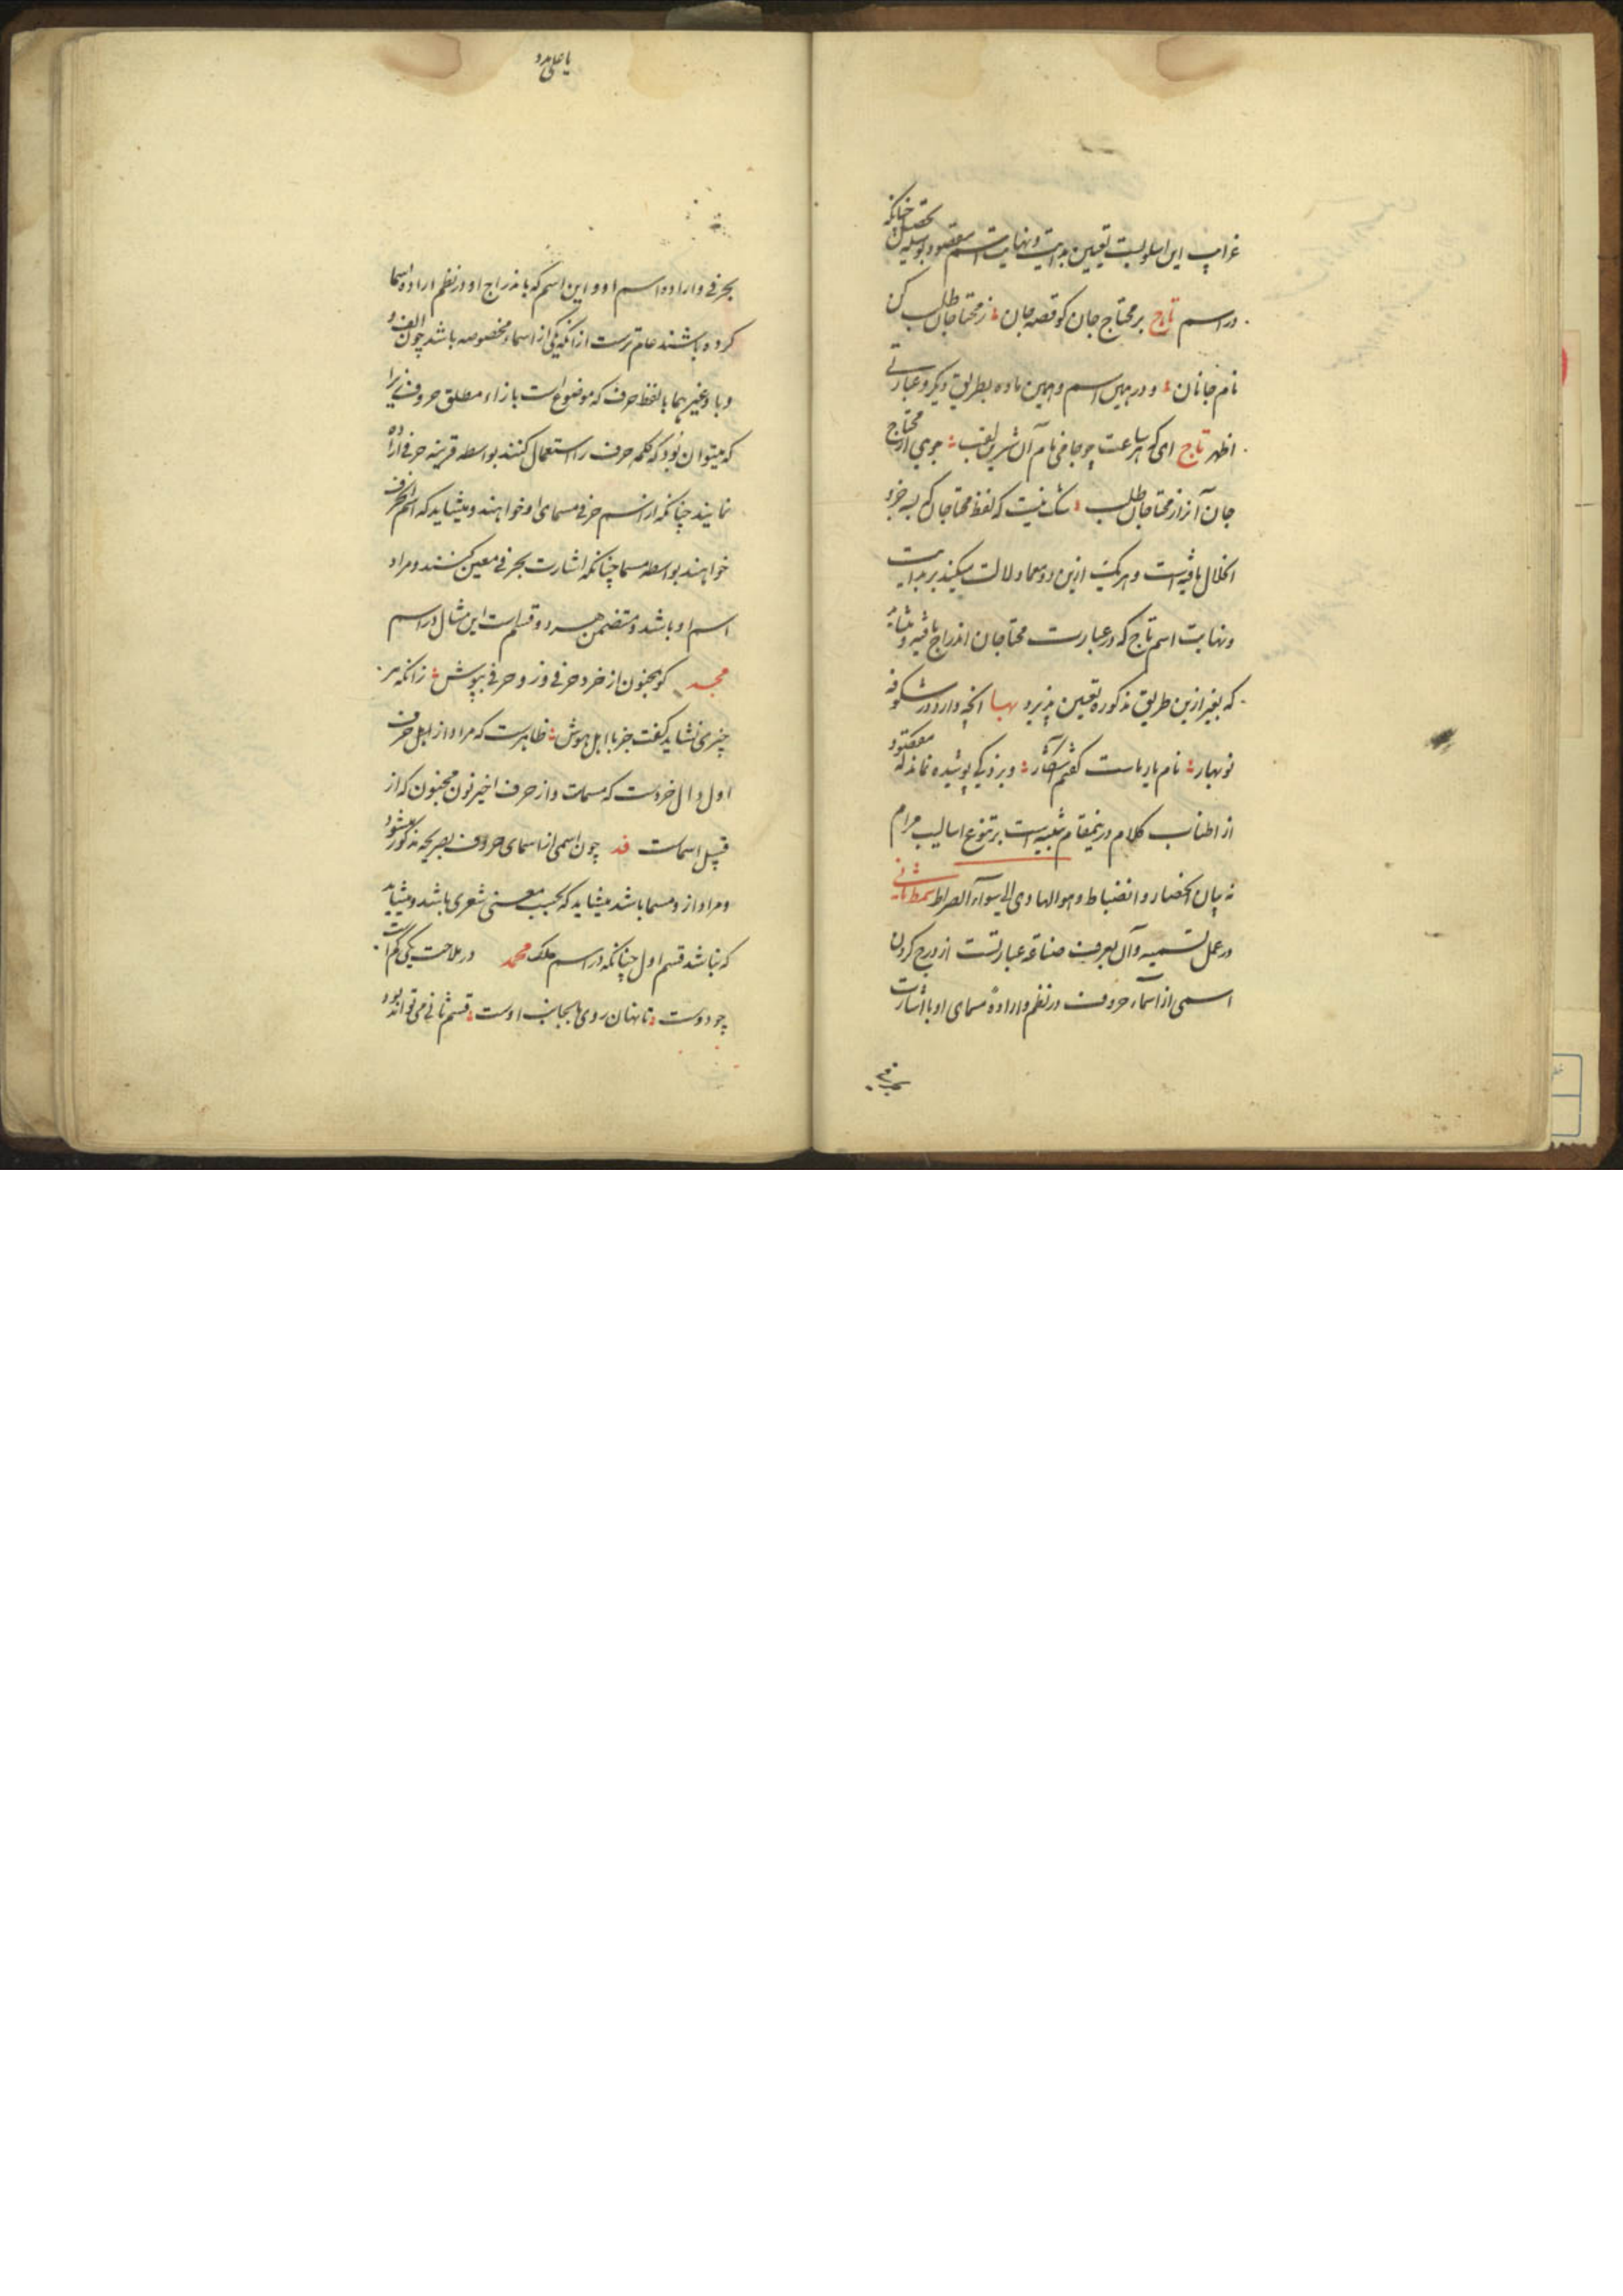 غرایب این اسلوبست تعیین بدایت و نهایت اسم مقصود بوسیله تحصیل چنانکه
در اسم تاج بر محتاج جان کو قصه جان ؛ ز محتاجان طلب کن
نام جانان ؛ و در همین اسم و همین ماده بطریق دیگر و عبارتی
اظهر تاج ای که هر ساعت چو جامی نام آن شیرین لقب ؛ جویی از محتاج
جان آنرا ز محتاجان طلب ؛ شک نیست که لفظ محتاجان که بسه جزء
انحلال یافته است و هر یک ازین دو معما دلالت میکند بر بدایت
و نهایت اسم تاج که در عبارت محتاجان اندراج یافته و
که بغیر ازین طریق مذکوره تعیین پذیرد بهبا آنچه دارد در شکوفه
نوبهار ؛ نام یار ماست گفتم آشکار ؛ و بر ذکی پوشیده نماند که مقصود
از اطناب کلام درینمقام تنبیه است بر تنوع اسالیب مرام
نه بیان انحصار و انضباط و هو الهادی الی سوآء الصراط سمط ثانی
در عمل تسمیه و آن بعرف صناعة عبارتست از درج کردن
اسمی از اسمآء حروف در نظم و ارادهٔ مسمای او با اشارت
بحرفی
یا علی مدد
بحرفی و اراده اسم او و این اسم که باندراج او در نظم اراده اسما
کرده باشند عام ترست از آنکه یکی از اسماء مخصوصه باشد چون الف و
و با و غیرهما یا لفظ حرف که موضوع است بازاء مطلق حروف زیرا
که میتواند بود که کلمه حرف را استعمال کنند بواسطه قرینه حرفی اراده
نمایند چنانکه از اسم حرفی مسمای او خواهند و میشاید که اسم آنحرف
خواهند بواسطه مسما چنانکه اشارت بحرفی معین کنند و مراد
اسم او باشد و متضمن هر دو قسم است این مثال در اسم
مجد کو مجنون از خرد حرفی و ز و حرفی بپوش ؛ زانکه هر
چیزی نشاید گفت جز با اهل هوش ؛ ظاهرست که مراد از اول حرف
اول دال خردست که مسماست و از حرف اخیر نون مجنون که از
قبیل اسماست قد چون اسمی از اسمای حروف بصریحه مذکور میشود
و مراد از و مسما باشد میشاید که بحسب معنی شعری باشد و میشاید
که نباشد قسم اول چنانکه در اسم ملک محمد در ملاحت یکی کم است
چو دوست ؛ تا نهان روی بجانب اوست ؛ قسم ثانی می تواند بود